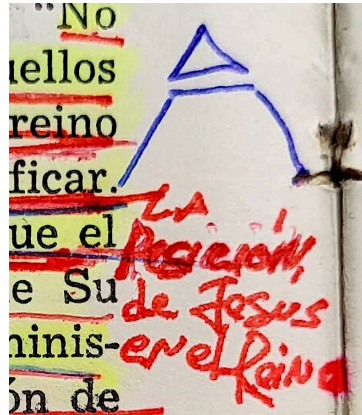 "No
uellos
reino
ficar.
ue el
e Su
ninis-
ón de
LA
Posición,
de Jesus
en el Reino